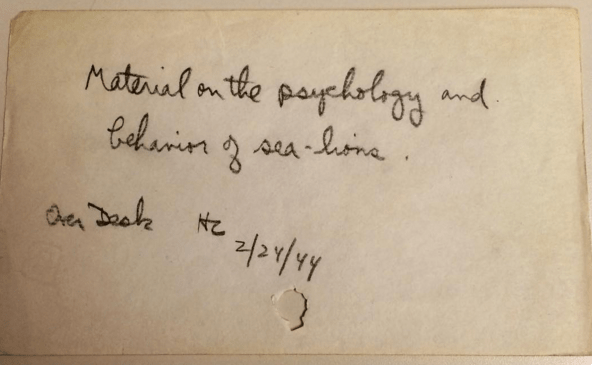 Material on the psychology and
behavior of sea-lions.
Over Desk HC
2/24/44